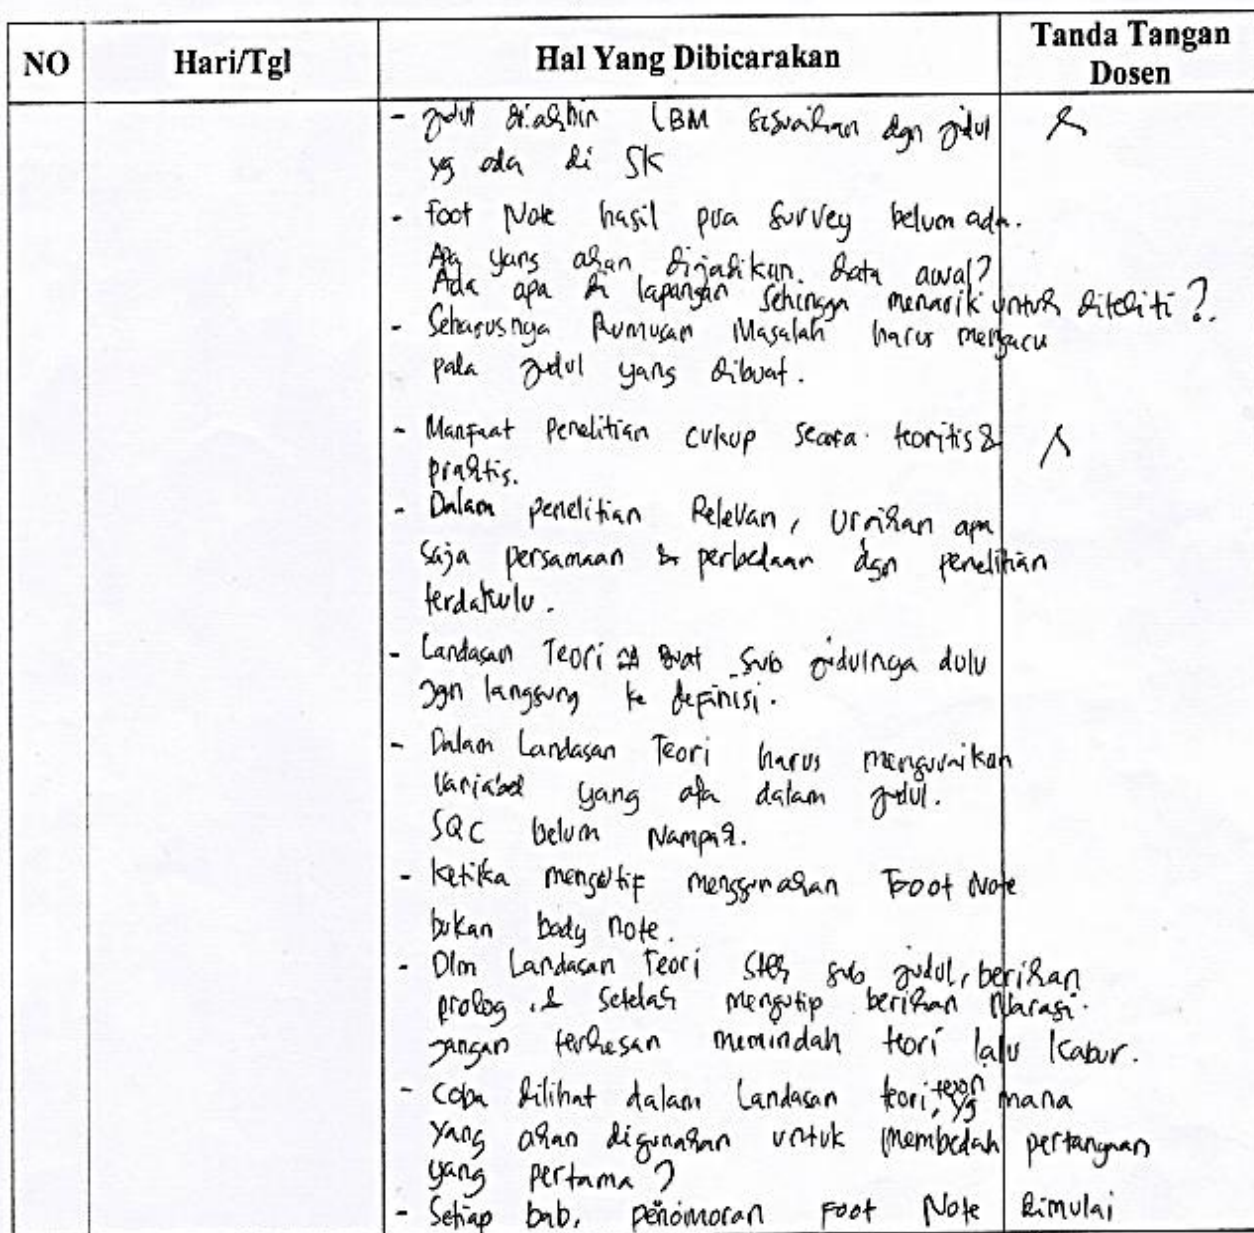 NO Hari/Tgl Hal Yang Dibicarakan Tanda Tangan Dosen
- Judul diakhir LBM sesuaikan dgn judul
yg ada di SK
- Foot Note hasil pra survey belum ada.
Apa yang akan dijadikan data awal?
Ada apa di lapangan sehingga menarik untuk diteliti?
- Seharusnya Rumusan Masalah harus mengacu
pada judul yang dibuat.
- Manfaat penelitian cukup secara teoritis &
praktis.
- Dalam penelitian Relevan, uraikan apa
saja persamaan & perbedaan dgn penelitian
terdahulu.
- Landasan Teori buat sub judulnya dulu
jgn langsung ke definisi.
- Dalam Landasan Teori harus menguraikan
Variabel yang ada dalam judul.
SQC belum Nampak.
- Ketika mengutip menggunakan Foot Note
bukan body note.
- Dlm Landasan Teori stlh sub judul, berikan
prolog & setelah mengutip berikan Narasi.
jangan terkesan memindah teori lalu kabur.
- Coba dilihat dalam Landasan teori, teori yg mana
yang akan digunakan untuk membedah pertanyaan
yang pertama?
- Setiap bab, penomoran Foot Note dimulai